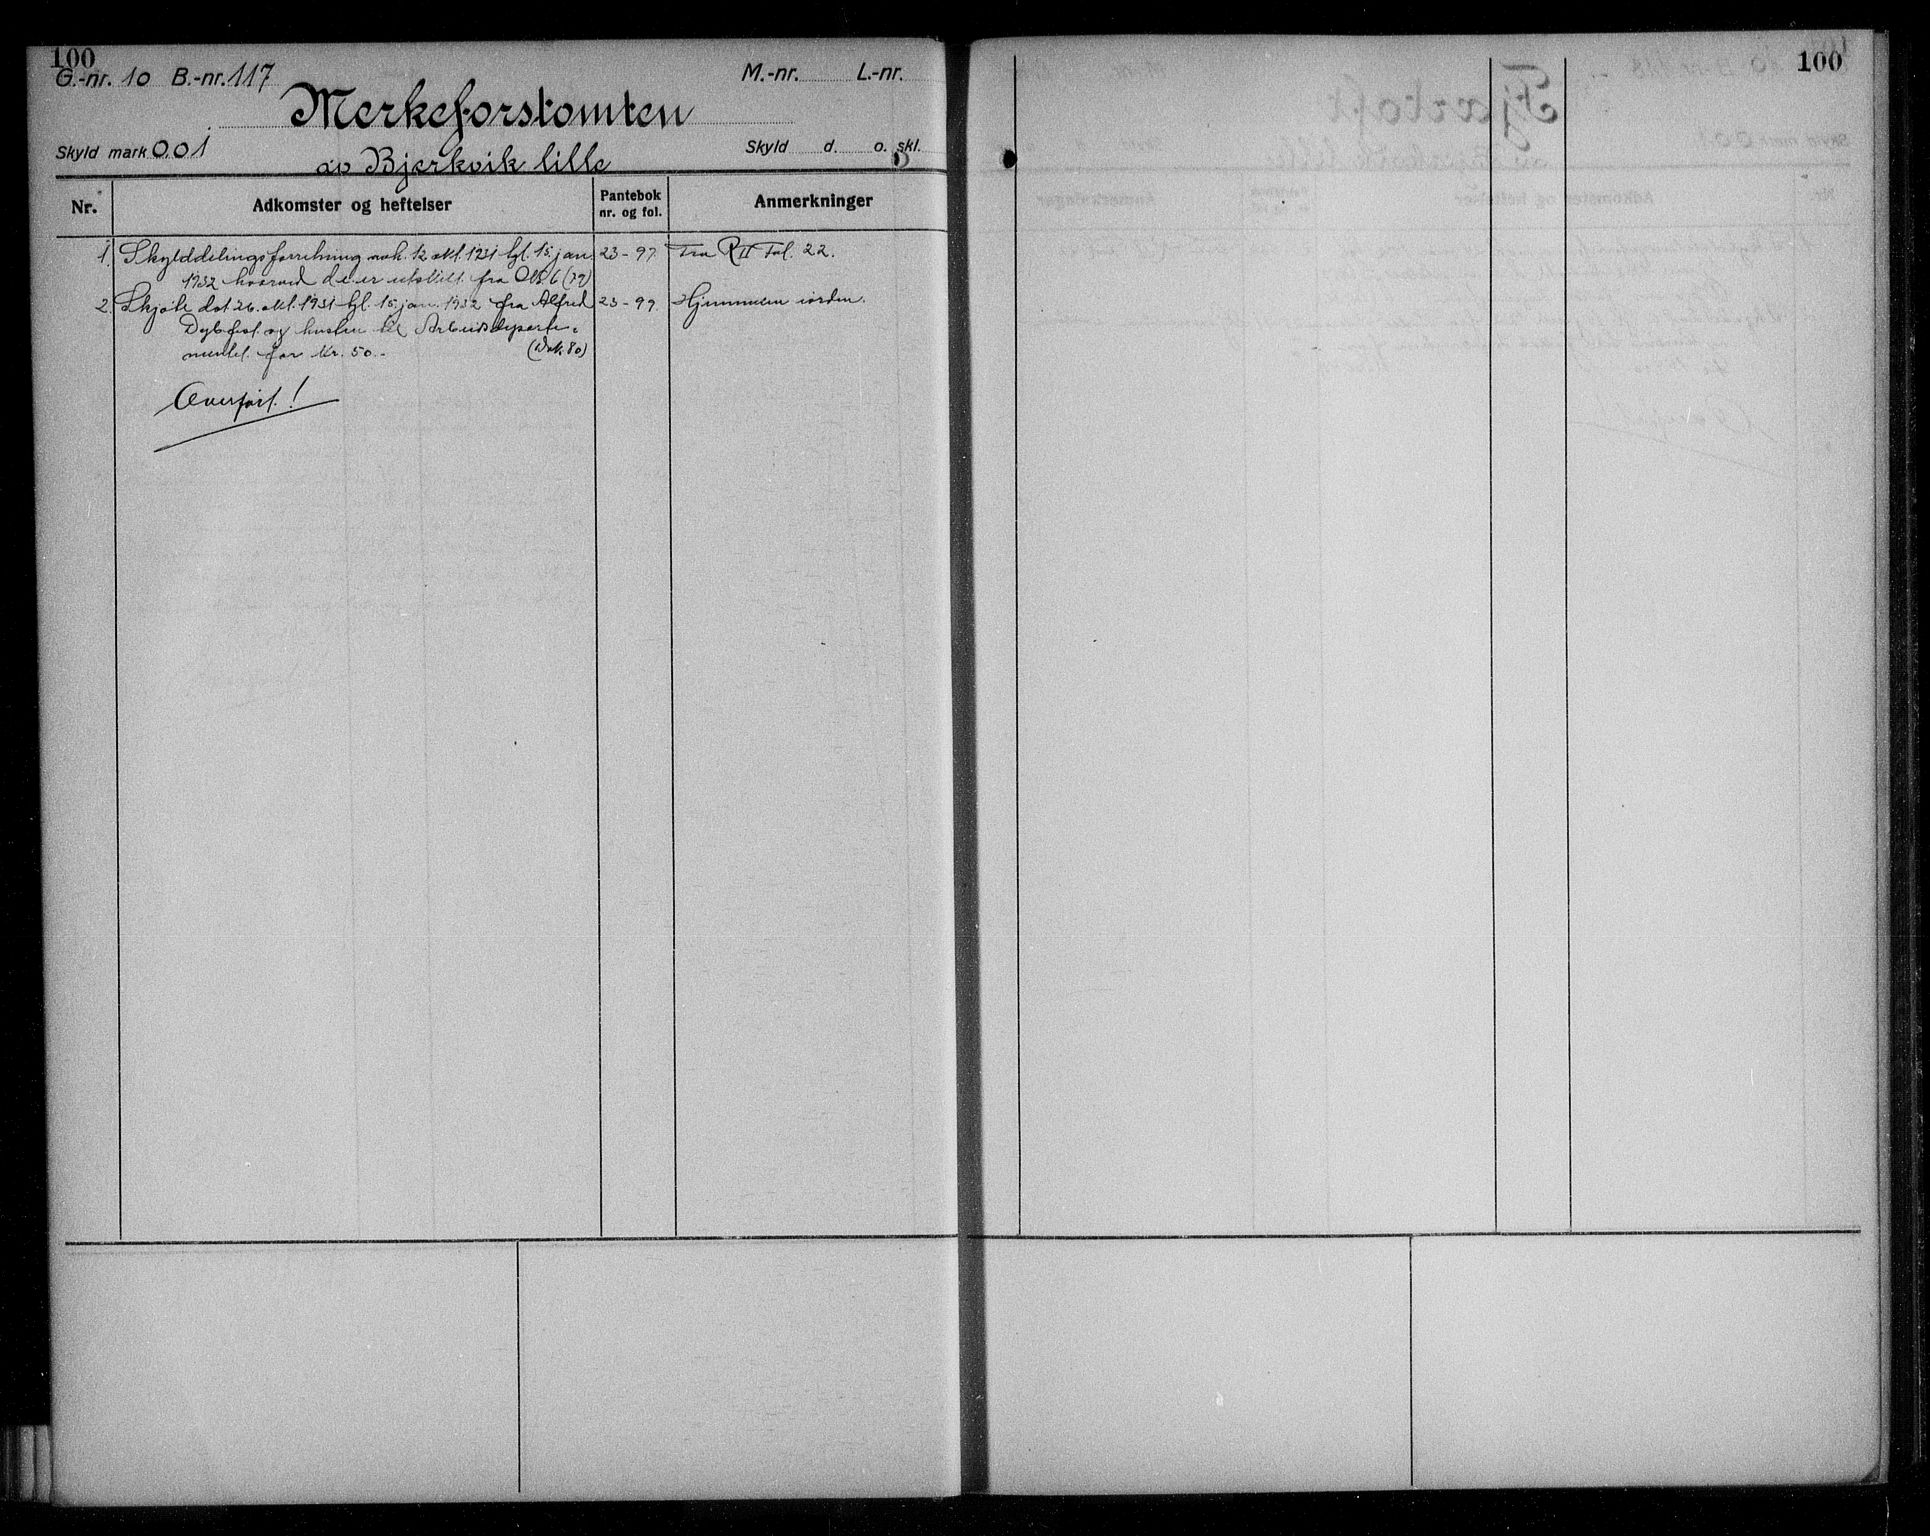 100
G.-nr. 10 B.-nr. 117 M.-nr. L.-nr.
Merkeforstomten
Skyld mark 0 0 1 Skyld d. o. skl.
av Bjerkvik lille
Nr. Adkomster og heftelser Pantebok nr. og fol. Anmerkninger
1. Skylddelingsforretning avh. 12 okt. 1931 tgl. 15. jan. 23 - 97. Fra R II Fol. 22.
1932 hvorved de er utskilt fra 6 (79)
2. Skjøte dat 26. okt. 1931 tgl. 15. jan. 1932 fra Alfred 23 - 99. Hjemmelen i orden.
og hustru til Arbeidsdeparte-
mentet for kr. 50.- (Dok. 80)
Overført!
100